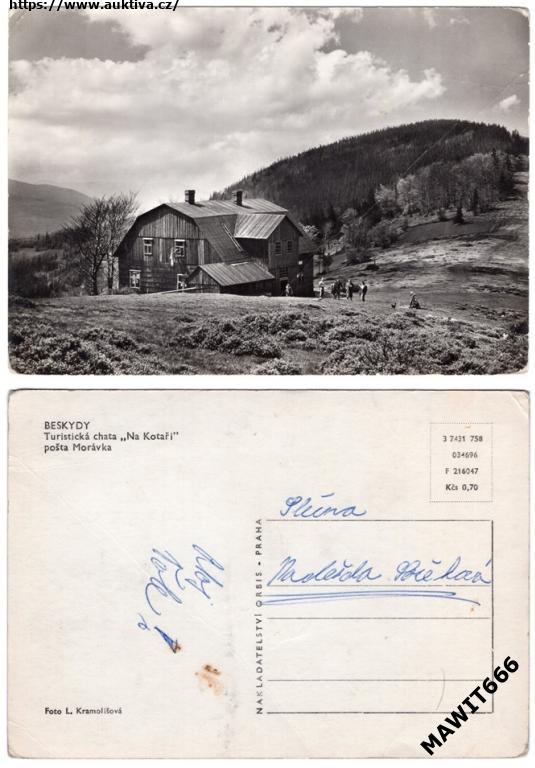 https://www.auktiva.cz/
BESKYDY
Turistická chata „Na Kotaři"
pošta Morávka
3 7431 758
034696
F 216047
Kčs 0,70
Naděžda
NAKLADATELSTVÍ ORBIS - PRAHA
Foto L. Kramolišová
MAWIT666